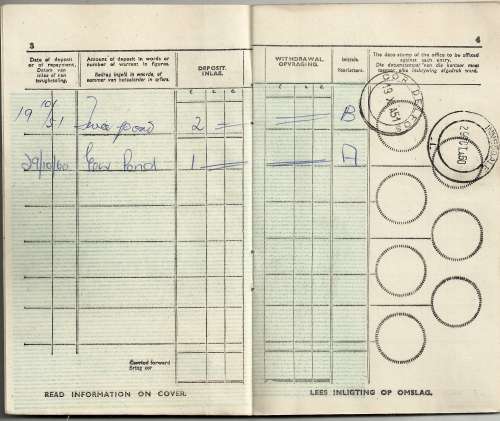 3
Date of deposit
or of repayment.
Datum van
inlae of van
terugbetaling.
Amount of deposit in words or
number of warrant in figures.
Bedrag ingelê in woorde, of
nommer van betaalorder in syfers.
DEPOSIT.
INLAE.
£
19
51
Twee pond
2
29/10/60
Een Pond
1
Carried forward
Bring oor
READ INFORMATION ON COVER.
4
WITHDRAWAL.
OPVRAGING.
Initials.
Voorletters.
The date-stamp of the office to be affixed
against each entry.
Die datumstempel van die kantoor moet
teenoor elke inskrywing afgedruk word.
£
B
A
DELFOS
LEES INLIGTING OP OMSLAG.